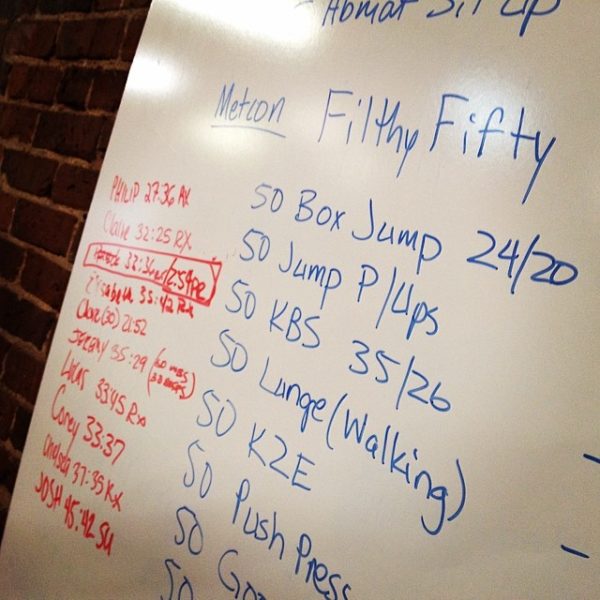 Abmat Sit Up
Metcon Filthy Fifty
50 Box Jump 24/20
50 Jump P/Ups
50 KBS 35/26
50 Lunge (Walking)
50 K2E
50 Push Press
50
50
PHILIP 27:36 RX
Claire 32:25 RX
32:36
Elisabeth 35:42 RX
Clare (30) 21:52
JEREMY 35:29
LUCAS 33:45 Rx
Corey 33:37
Chelsea 37:35 RX
JOSH 45:42 SU